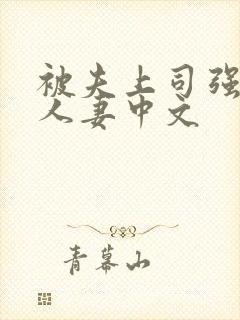 被夫上司强
人妻中文
青幕山